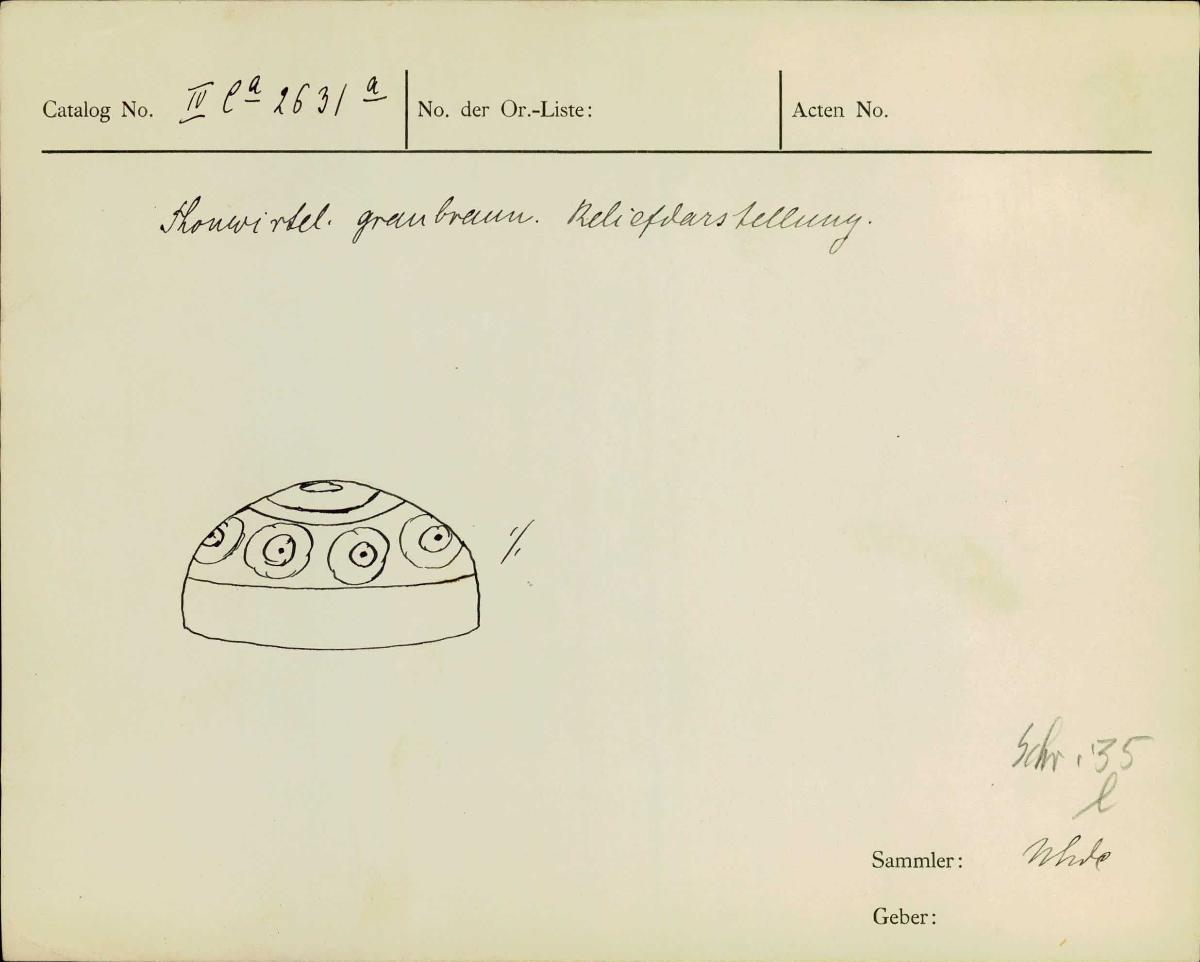 Catalog No. IV Ca 2631 a No. der Or.-Liste: Acten No.
Thonwirtel. graubraun. Reliefdarstellung.
1/1
Schr. 35
l
Sammler: Uhde
Geber: